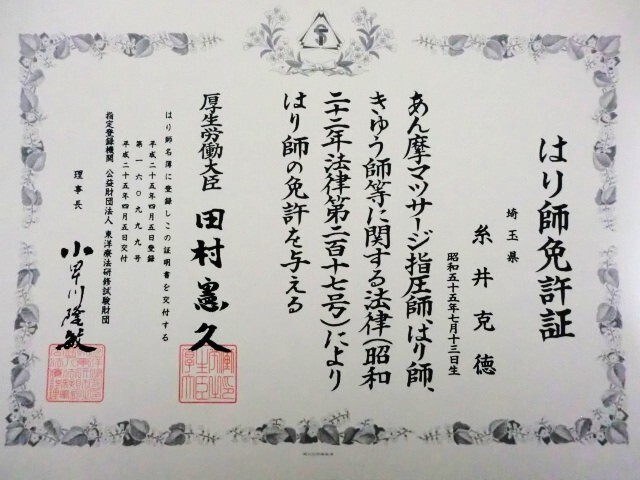 はり師免許証
埼玉県
糸井克徳
昭和五十五年七月十三日生
あん摩マツサージ指圧師、はり師、
きゆう師等に関する法律(昭和
二十二年法律第二百十七号)により
はり師の免許を与える
厚生労働大臣 田村憲久
はり師名簿に登録しこの証明書を交付する
平成二十五年四月五日登録
第一六〇九九九号
平成二十五年四月五日交付
指定登録機関 公益財団法人 東洋療法研修試験財団
理事長 小早川隆敏